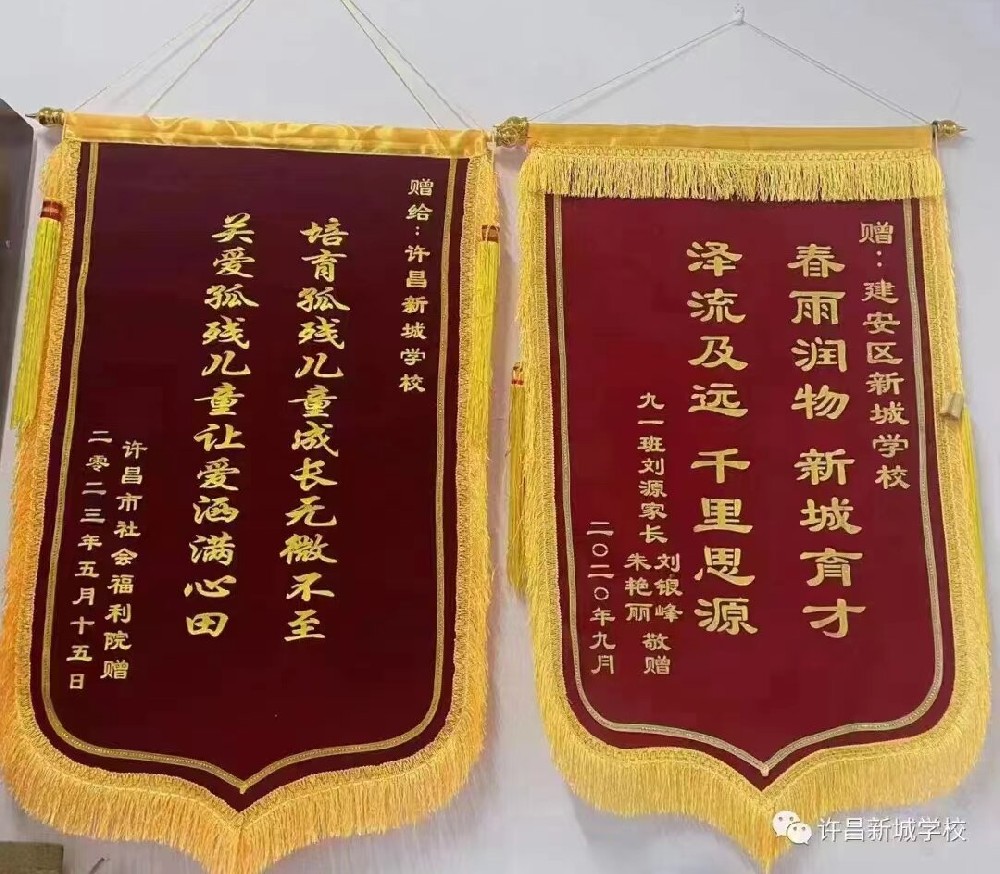 赠给：许昌新城学校
培育孤残儿童成长无微不至
关爱孤残儿童让爱洒满心田
许昌市社会福利院赠
二零二三年五月十五日
赠：建安区新城学校
春雨润物 新城育才
泽流及远 千里思源
九一班刘源家长 刘银峰 朱艳丽 敬赠
二〇二〇年九月
许昌新城学校